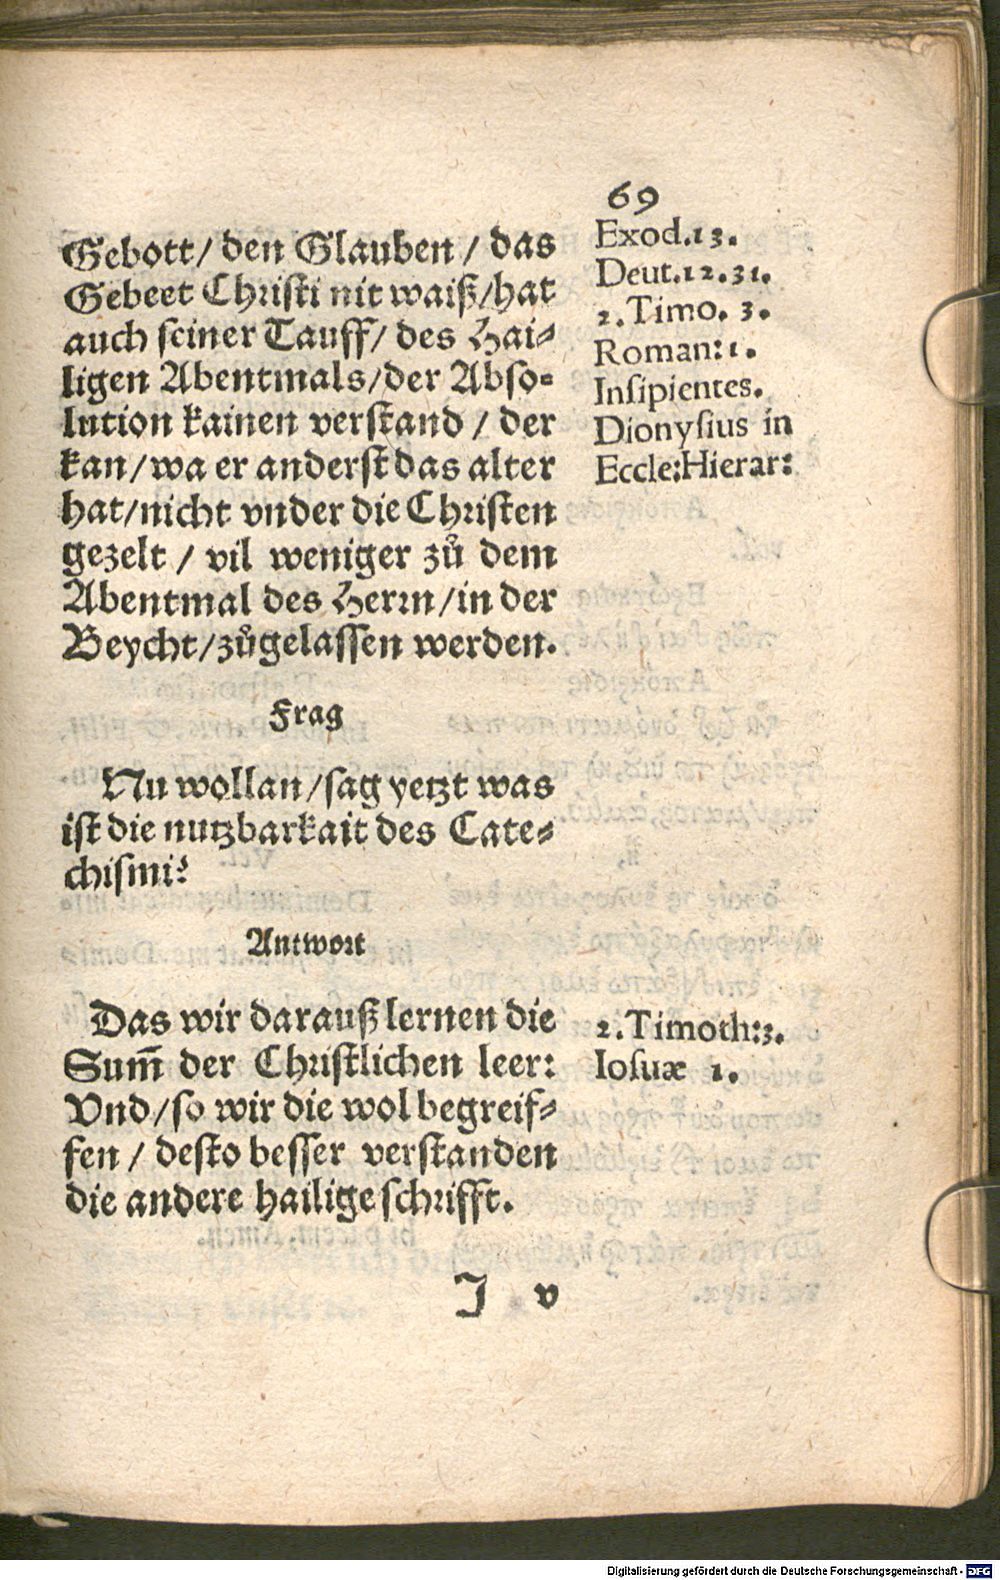 69
Gebott/ den Glauben / das
Gebeet Christi nit waiß/hat
auch seiner Tauff/ des Hai-
ligen Abentmals/der Abso-
lution kainen verstand / der
kan/wa er anderst das alter
hat/nicht vnder die Christen
gezelt / vil weniger zů dem
Abentmal des Herrn/in der
Beycht/zůgelassen werden.
Exod.13.
Deut.12.31.
2.Timo. 3.
Roman:1.
Insipientes.
Dionysius in
Eccle:Hierar:
Frag
Nu wollan/sag yetzt was
ist die nutzbarkait des Cate-
chismi?
Antwort
Das wir darauß lernen die
Sum̄ der Christlichen leer:
Vnd/so wir die wol begreif-
fen / desto besser verstanden
die andere hailige schrifft.
2.Timoth:3.
Iosuæ 1.
J v
Digitalisierung gefördert durch die Deutsche Forschungsgemeinschaft - DFG